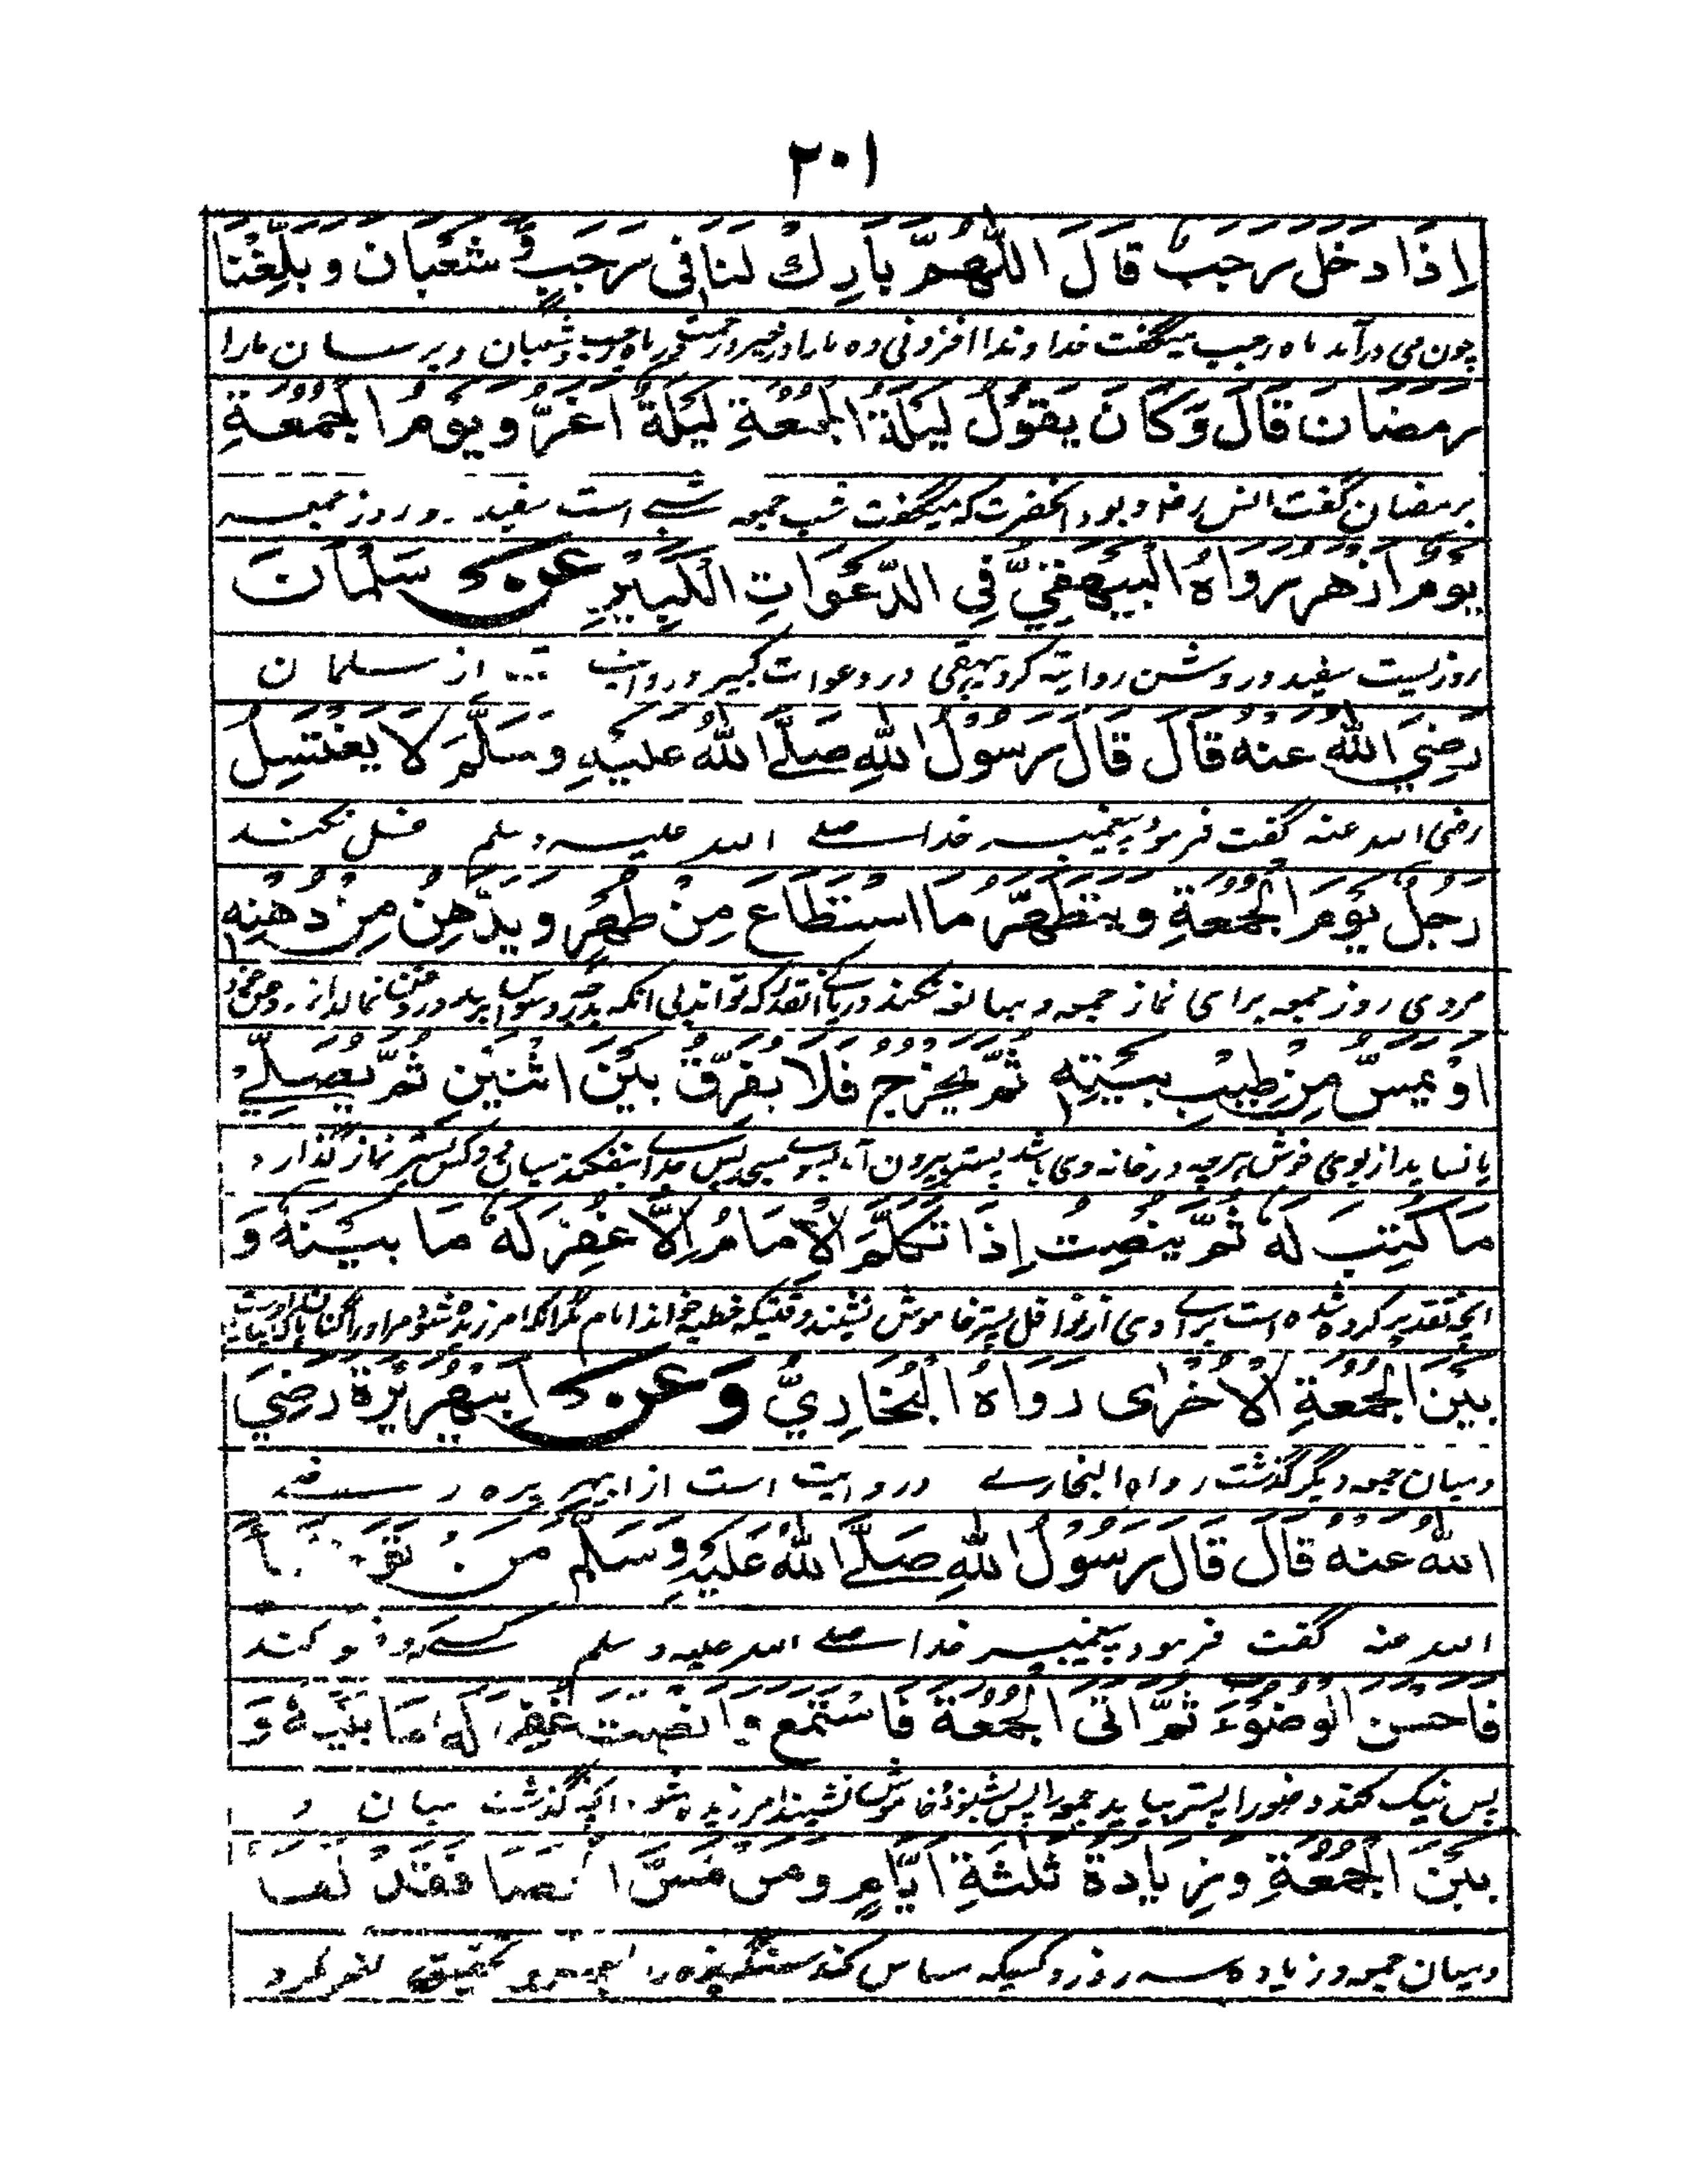 ۲۰۱
اِذَا دَخَلَ رَجَبُ قَالَ اللّٰهُمَّ بَارِكْ لَنَا فِى رَجَبٍ وَّشَعْبَانَ وَبَلِّغْنَا
چون می درآمد ماه رجب میگفت خداوندا افزونی ده مارا در خیر در ماه رجب و شعبان و برسان مارا
رَمَضَانَ قَالَ وَكَانَ يَقُوْلُ لَيْلَةُ الْجُمُعَةِ لَيْلَةٌ اَغَرُّ وَيَوْمُ الْجُمُعَةِ
برمضان گفت انس رض و بود آنحضرت که میگفت شب جمعه شبے است سفید و روز جمعه
يَوْمٌ اَزْهَرُ رَوَاهُ الْبَيْهَقِيُّ فِي الدَّعَوَاتِ الْكَبِيْرِ عَنْ سَلْمَانَ
روزیست سفید و روشن روایت کرد بیهقی در دعوات کبیر و روایت از سلمان
رَضِيَ اللّٰهُ عَنْهُ قَالَ قَالَ رَسُوْلُ اللّٰهِ صَلَّى اللّٰهُ عَلَيْهِ وَسَلَّمَ لَا يَغْتَسِلُ
رضی الله عنه گفت فرمود پیغمبر خدا صلے الله علیه وسلم غسل نکند
رَجُلٌ يَوْمَ الْجُمُعَةِ وَيَتَطَهَّرُ مَا اسْتَطَاعَ مِنْ طُهْرٍ وَيَدَّهِنُ مِنْ دُهْنِهٖ
مردی روز جمعه برای نماز جمعه و مبالغه نکند در پاکے آنقدر که تواند بی آنکه و روغن نمالد از روغن خود
اَوْ يَمَسُّ مِنْ طِيْبِ بَيْتِهٖ ثُمَّ يَخْرُجُ فَلَا يُفَرِّقُ بَيْنَ اثْنَيْنِ ثُمَّ يُصَلِّيْ
یا نساید از بوی خوش هرچه در خانه وی باشد پستر بیرون آید بسوے مسجد پس جدا نیفکند میان دو کس پستر نماز گذارد
مَا كُتِبَ لَهٗ ثُمَّ يُنْصِتُ اِذَا تَكَلَّمَ الْاِمَامُ اِلَّا غُفِرَ لَهٗ مَا بَيْنَهٗ وَ
آنچه تقدیر کرده شده است برای وی از نوافل پستر خاموش نشیند وقتیکه خطبه خواند امام مگر آنکه آمرزیده شود مر او را
بَيْنَ الْجُمُعَةِ الْاُخْرٰى رَوَاهُ الْبُخَارِيُّ وَعَنْ اَبِيْهُرَيْرَةَ رَضِيَ
ومیان جمعه دیگر گذشت رواه البخارے و روایت است از ابیهریره رضے
اللّٰهُ عَنْهُ قَالَ قَالَ رَسُوْلُ اللّٰهِ صَلَّى اللّٰهُ عَلَيْهِ وَسَلَّمَ مَنْ
الله عنه گفت فرمود پیغمبر خدا صلے الله علیه وسلم کسے که وضو کند
فَاَحْسَنَ الْوُضُوْءَ ثُمَّ اَتَى الْجُمُعَةَ فَاسْتَمَعَ وَاَنْصَتَ غُفِرَ لَهٗ مَا بَيْنَهٗ وَ
پس نیک کند وضو را پستر بیاید جمعه را پس بشنود و خاموش نشیند آمرزیده شود آنچه گذشت میان و
بَيْنَ الْجُمُعَةِ وَزِيَادَةُ ثَلٰثَةِ اَيَّامٍ وَمَنْ مَسَّ الْحَصَا فَقَدْ لَغَا
ومیان جمعه و زیاده سه روز و کسیکه مساس کند سنگریزه را تحقیق لغو کرد